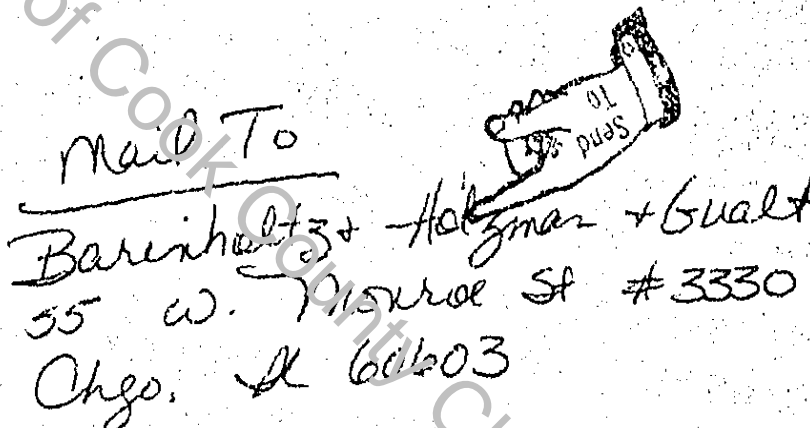 of Cook County Cl
Send
To
Mail To
Barenholtz + Holzman + Gualt
55 W. Monroe St #3330
Chgo. Il 60603